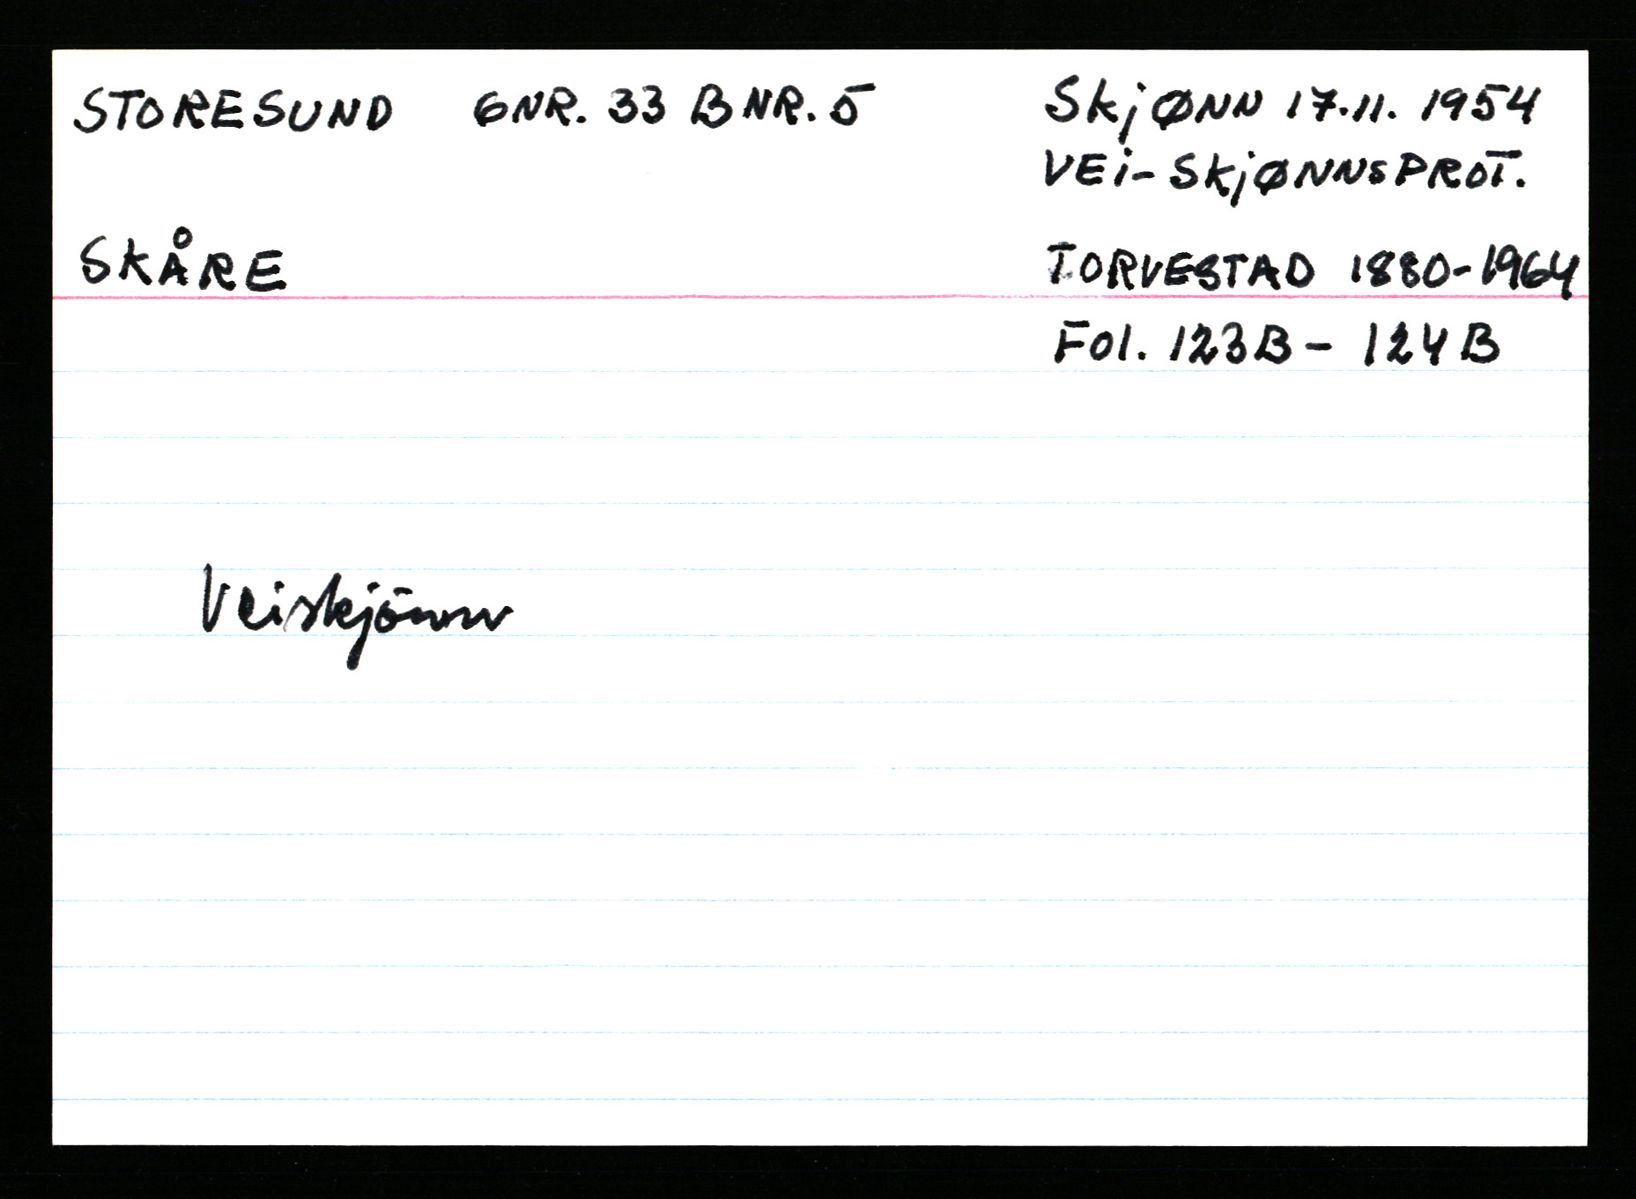 STORESUND GNR. 33 BNR. 5
SKÅRE
SkjØNN 17.11. 1954
VEi-SkjØNNSPROT.
TORVESTAD 1880-1964
Fol. 123B - 124B
Veiskjönn